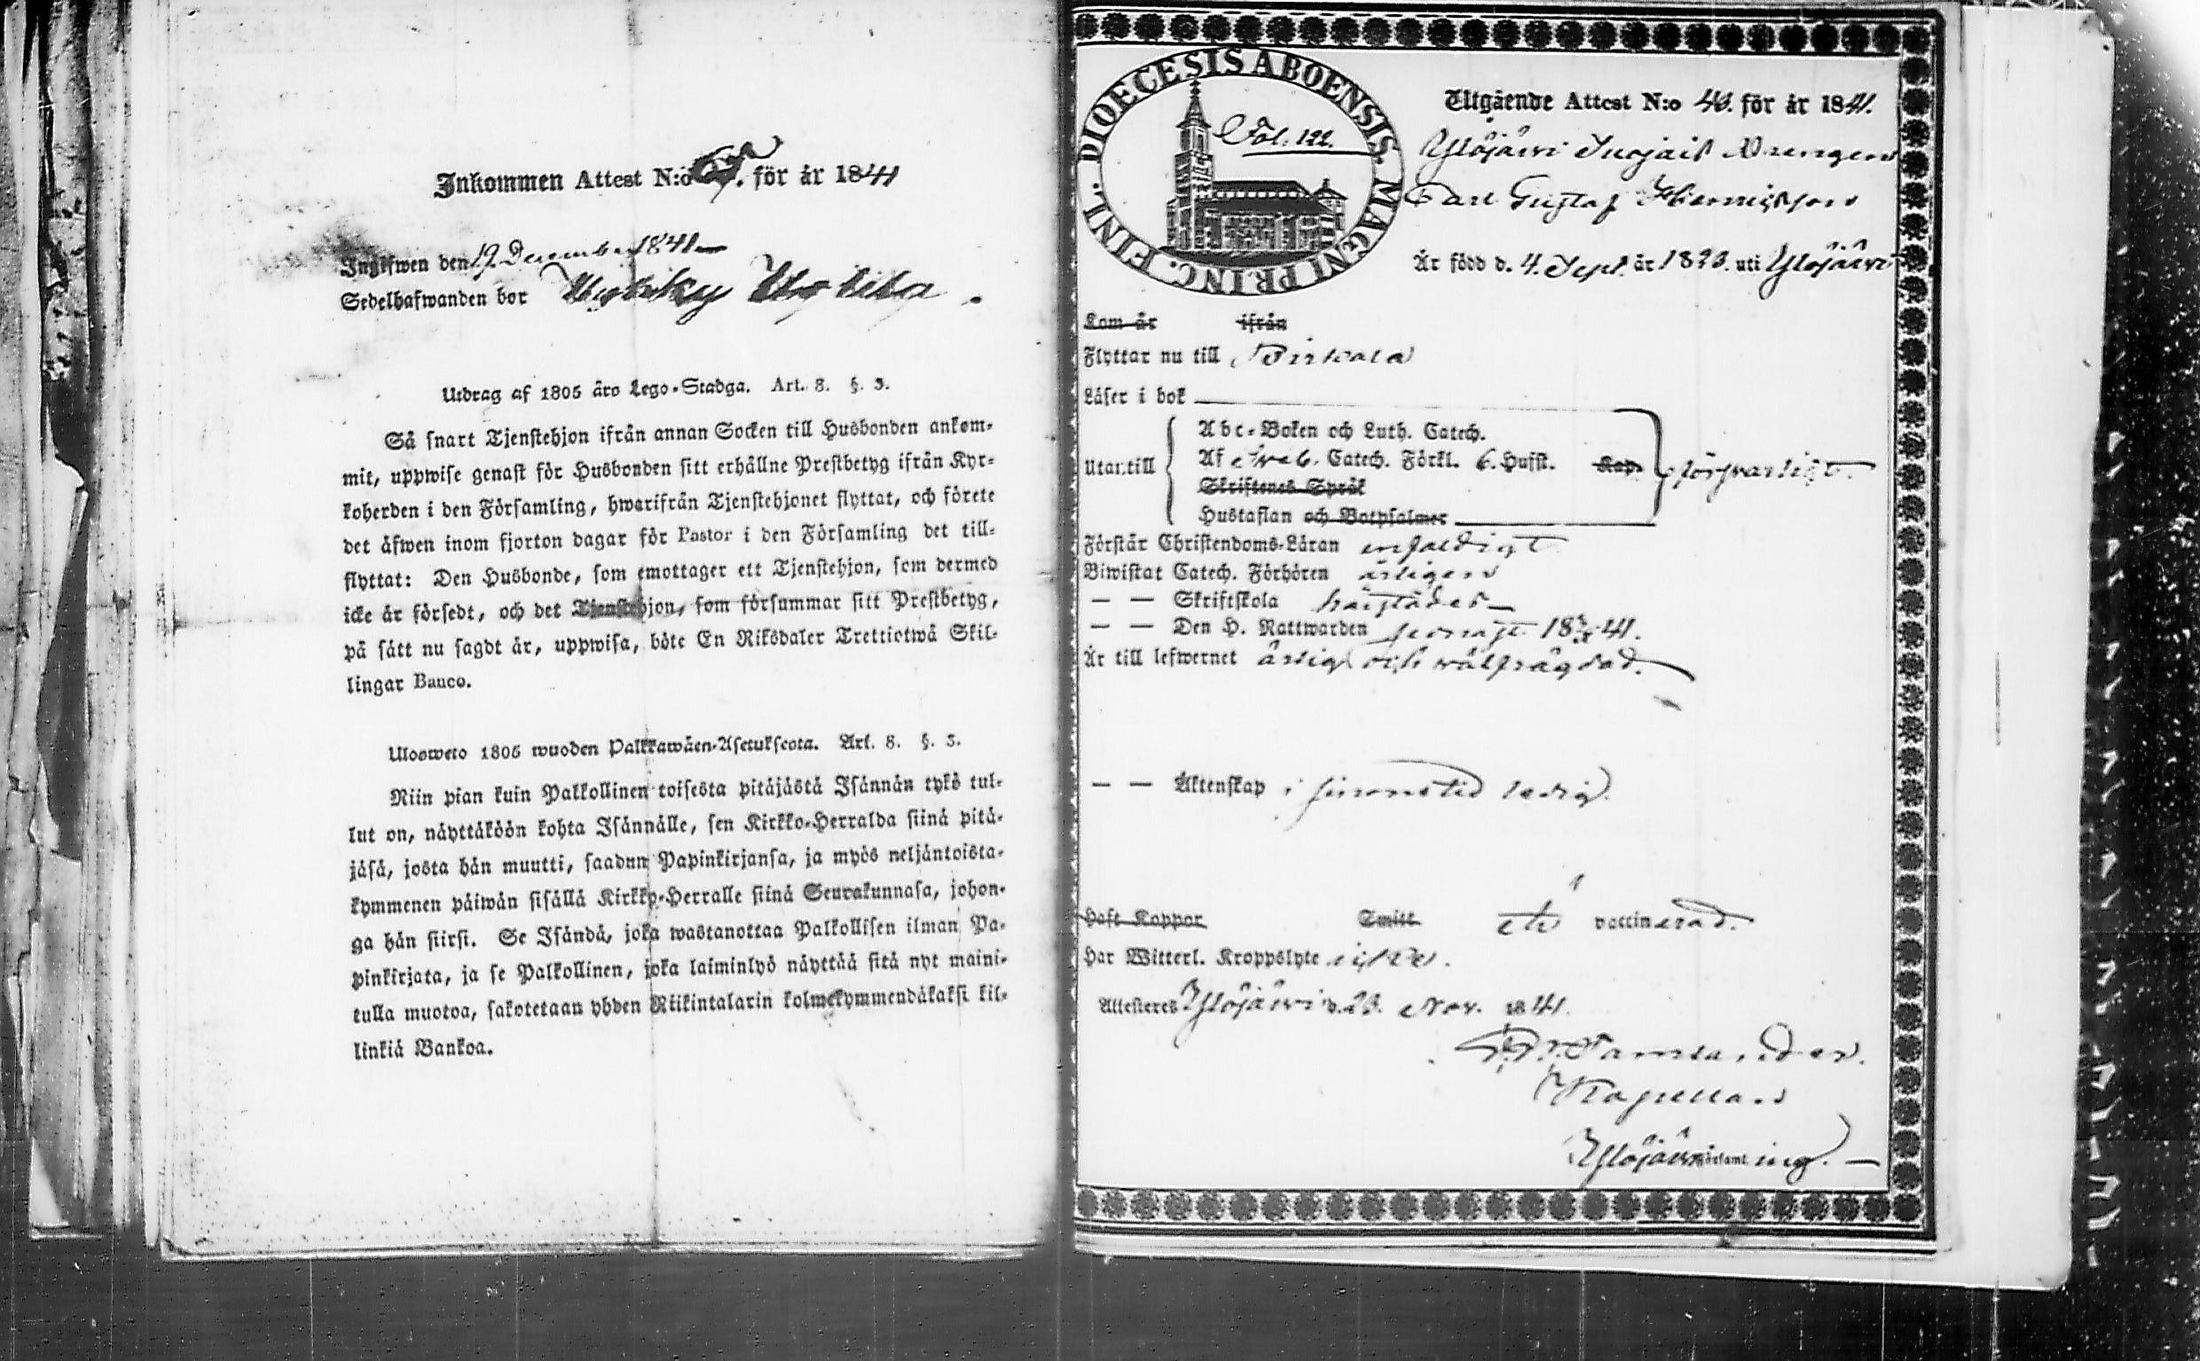 Inkommen Attest N:o för år 1841
Ingifwen den 19 Decemb. 1841
Sedelhafwanden bor
Utdrag af 1805 års Lego-Stadga. Art. 8. §. 3.
Så snart Tjenstehjon ifrån annan Socken till Husbonden ankom-
mit, uppwise genast för Husbonden sitt erhållne Prestbetyg ifrån Kyr-
koherden i den Församling, hwarifrån Tjenstehjonet flyttat, och förete
det äfwen inom fjorton dagar för Pastor i den Församling det till-
flyttat: Den Husbonde, som emottager ett Tjenstehjon, som dermed
icke är försedt, och det Tjenstehjon, som försummar sitt Prestbetyg,
på sätt nu sagdt är, uppwisa, böte En Riksdaler Trettiotwå Skil-
lingar Banco.
Ulosweto 1805 wuoden Palkkawäen-Asetuksesta. Art. 8. §. 3.
Niin pian kuin Palkollinen toisesta pitäjästä Isännän tykö tul-
lut on, näyttäköön kohta Isännälle, sen Kirkko-Herralda siinä pitä-
jäsä, josta hän muutti, saadun Papinkirjansa, ja myös neljäntoista-
kymmenen päiwän sisällä Kirkko-Herralle siinä Seurakunnasa, johon-
ga hän siirsi. Se Isändä, joka wastanottaa Palkollisen ilman Pa-
pinkirjata, ja se Palkollinen, joka laiminlyö näyttää sitä nyt maini-
tulla muotoa, sakotetaan yhden Riikintalarin kolmekymmendäkaksi kil-
linkiä Bankoa.
DIOECESIS ABOENSIS. MAGNI PRINC. FINL.
Fol. 122.
Utgående Attest N:o 40. för år 1841.
Ylöjärvi Drengen
Carl Gustaf
Är född d. 4. Sept. år 1823. uti Ylöjärvi
Kom år ifrån
Flyttar nu till Birkala
Läser i bok
Utan till
Abc-Boken och Luth. Catech.
Af Sveb. Catech. Förkl. 6. Hufst. Kap.
Skriftenes Språk
Hustaflan och Botpsalmer
försvarligt.
Förstår Christendoms-Läran enfaldigt
Biwistat Catech. Förhören årligen
— — Skriftskola härstädes
— — Den H. Nattwarden senast 18 41.
Är till lefwernet ärlig och välfrägdad.
— — Äktenskap i finnstid ledig.
Haft Koppor Smitt är vaccinerad.
Har Witterl. Kroppslyte icke.
Attesteres Ylöjärvi d. 23. Nov. 1841.
Kapellan
Ylöjärvi Församl ing.